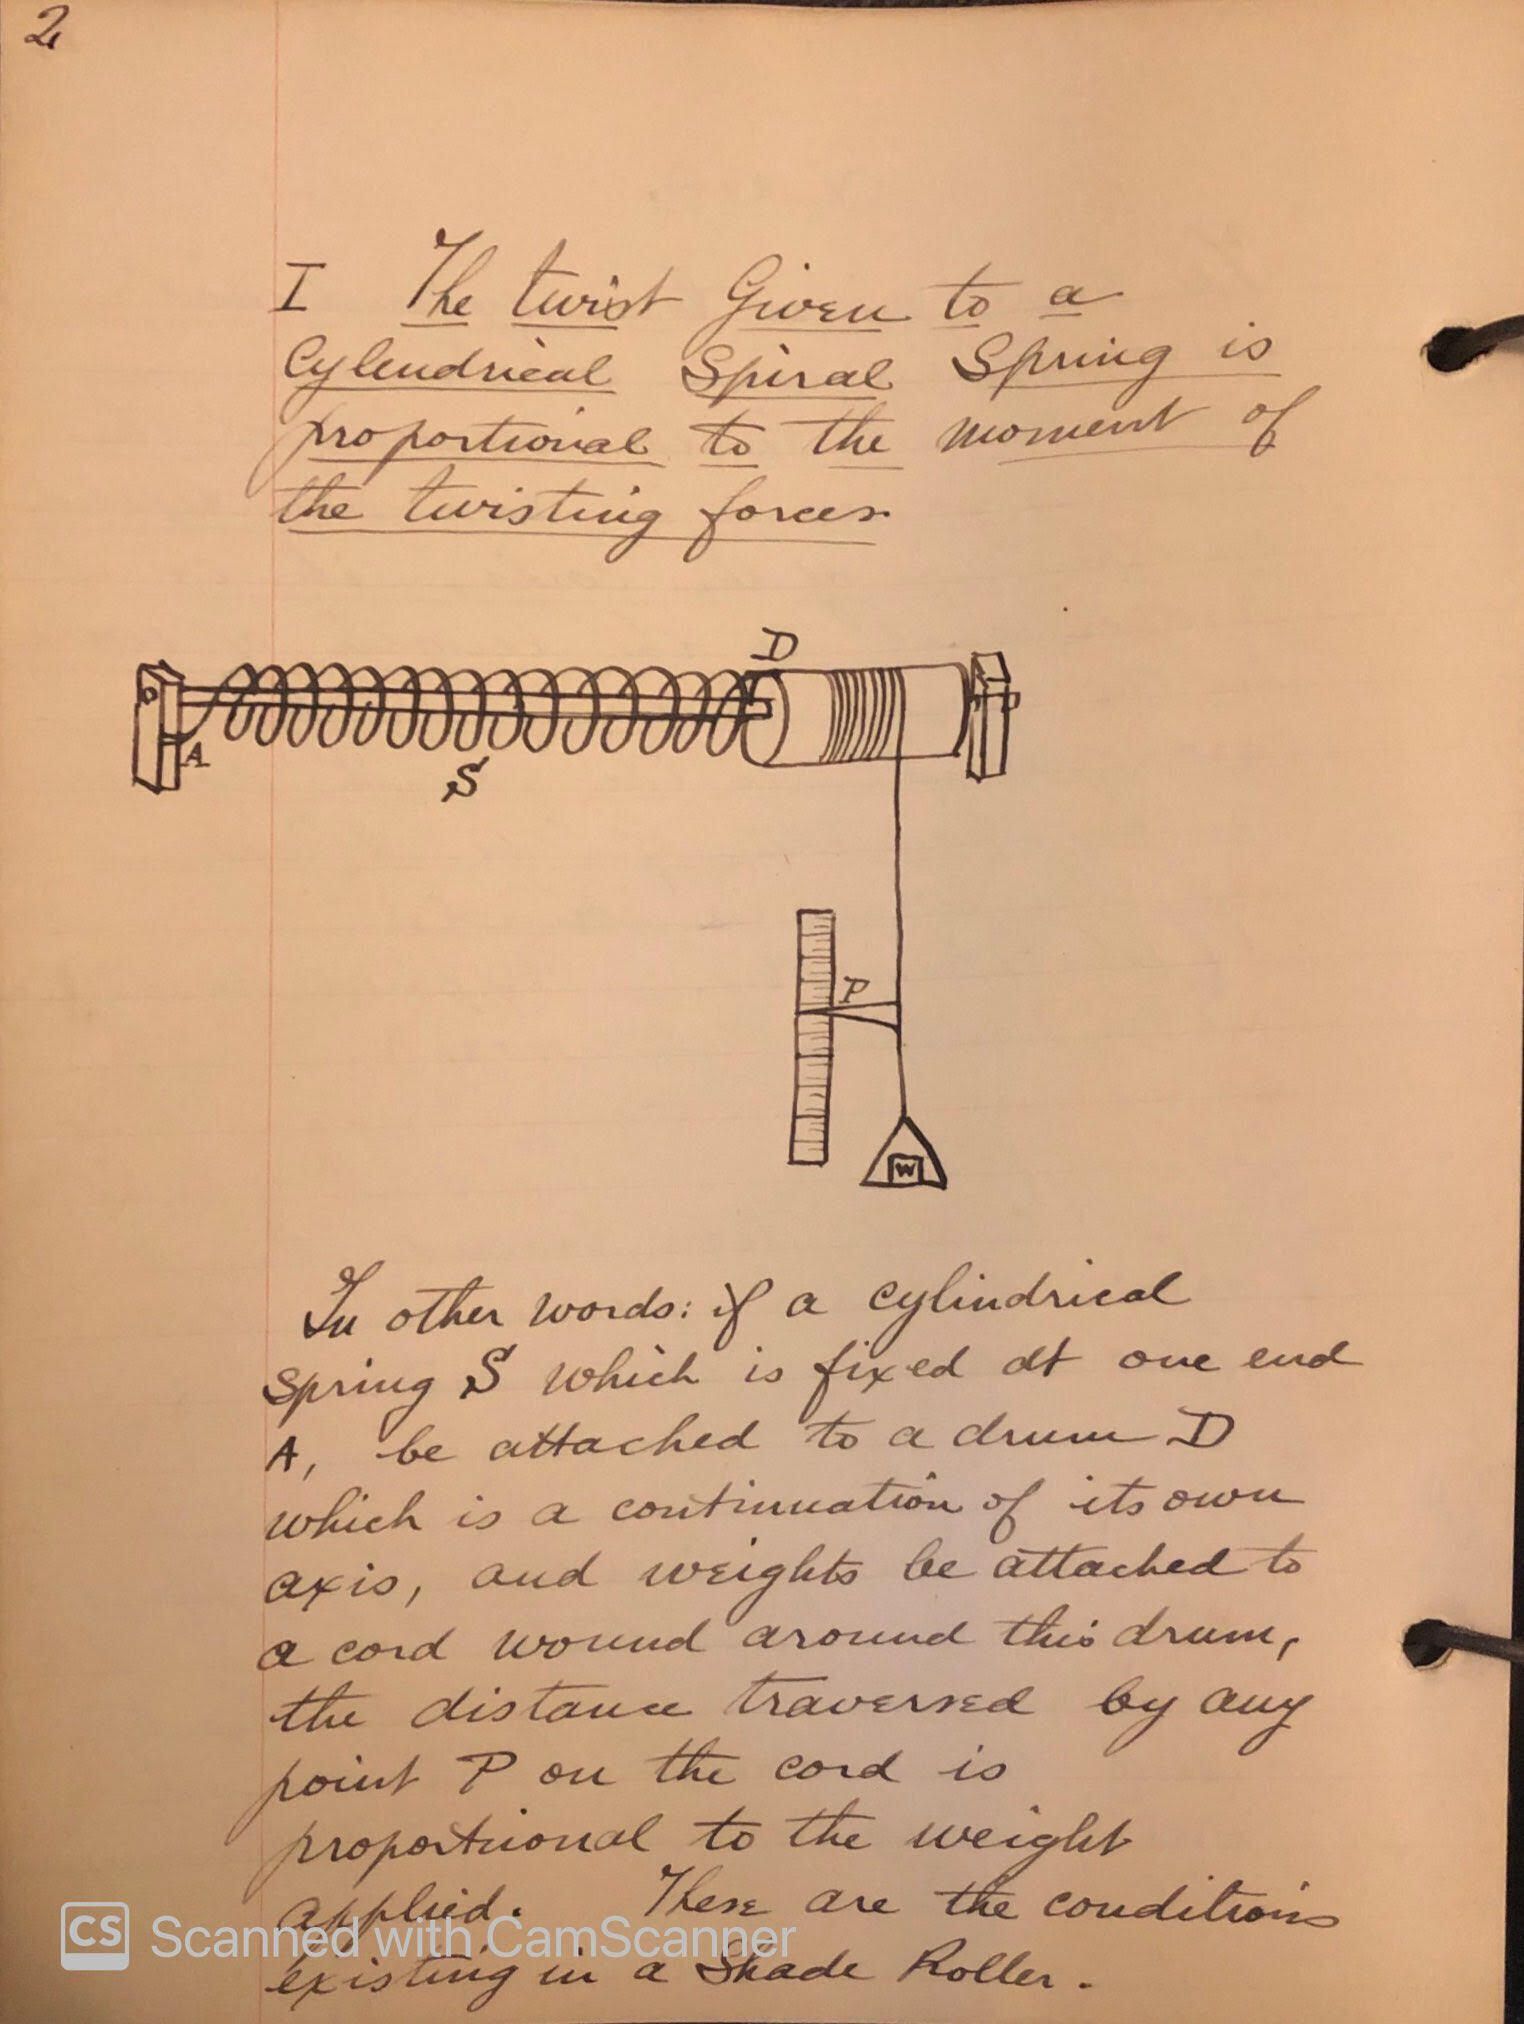 2
I The twist Given to a
Cylendrical Spiral Spring is
proportional to the moment of
the twisting forces.
D
A
S
P
W
In other words: if a cylindrical
spring S which is fixed at one end
A, be attached to a drum D
which is a continuation of its own
axis, and weights be attached to
a cord wound around this drum,
the distance traversed by any
point P on the cord is
proportional to the weight
applied. These are the conditions
existing in a Shade Roller.
CS Scanned with CamScanner